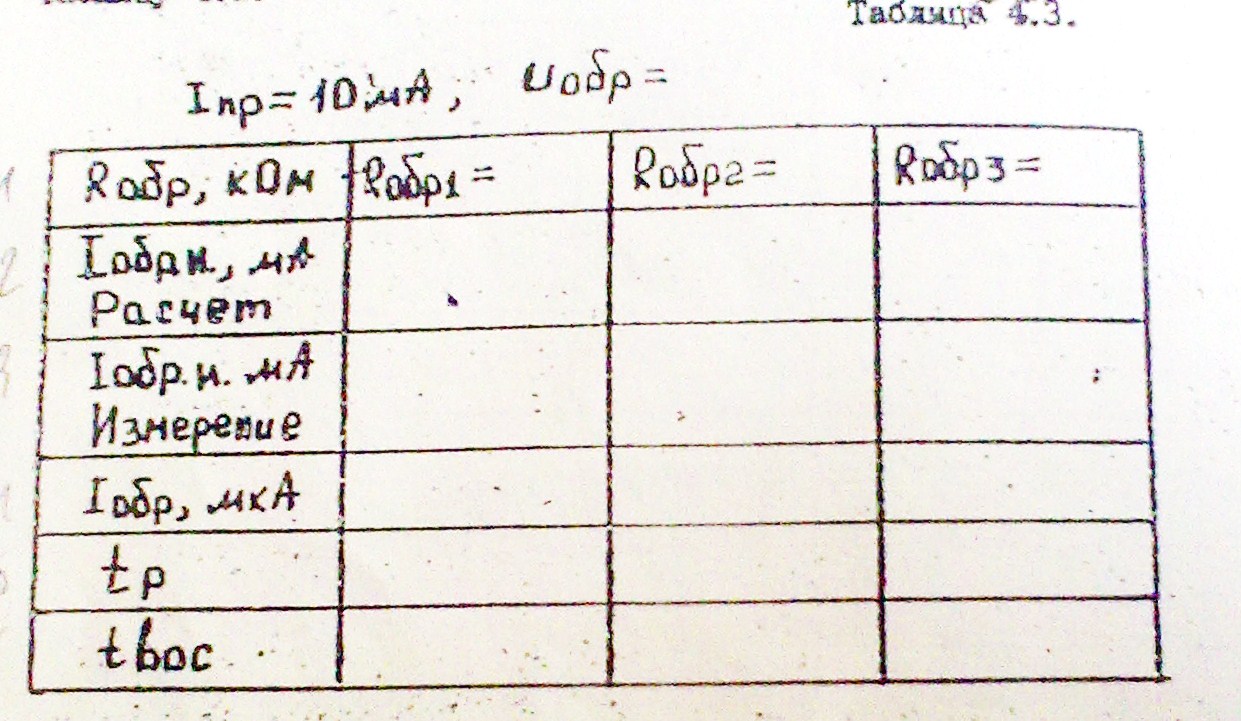 Таблица 4.3.
Iпр = 10 мА, Uобр =
Rобр, кОм Rобр1 = Rобр2 = Rобр3 =
Iобр.и., мА
Расчет
Iобр.и. мА
Измерение
Iобр, мкА
tр
tвос